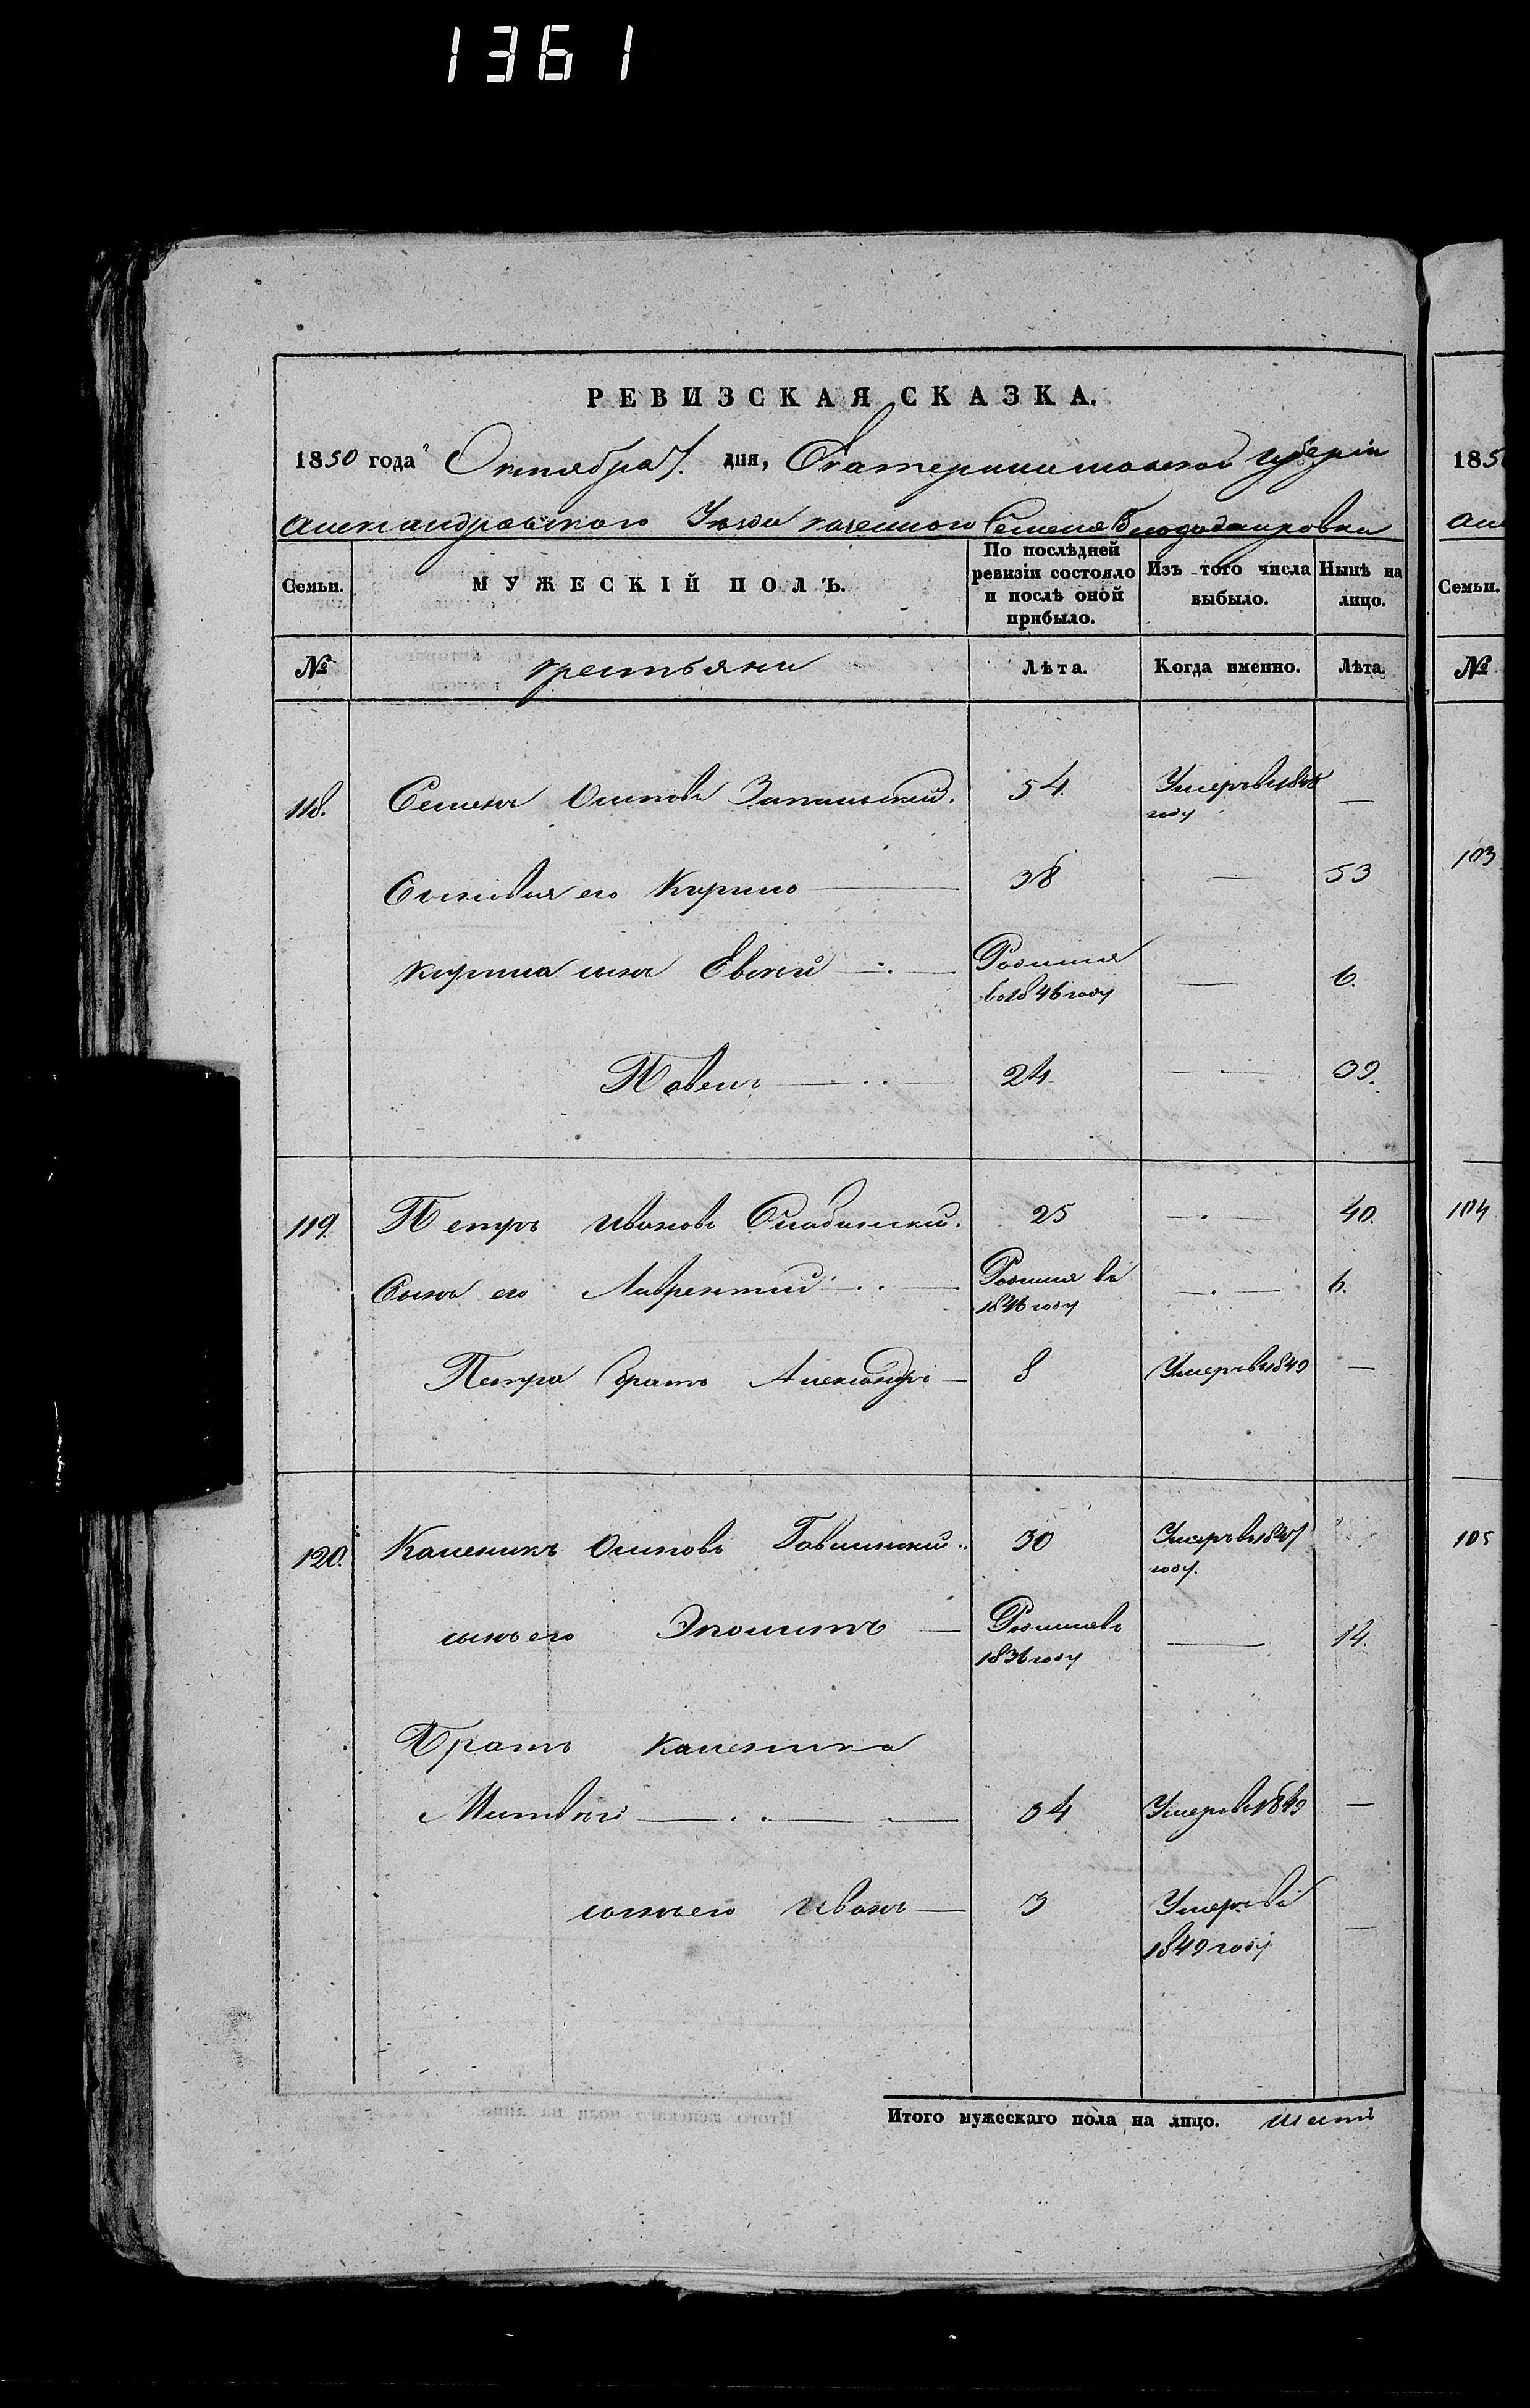 1361
РЕВИЗСКАЯ СКАЗКА.
1850 года Октября 7. дня, Екатеринославской губерніи
Александровского Уезда казенного Селения
Семьи. МУЖЕСКІЙ ПОЛЪ. По послѣдней ревизіи состояло и послѣ оной прибыло. Изъ того числа выбыло. Нынѣ на лицо.
№ крестьяни Лѣта. Когда именно. Лѣта.
118. Семенъ Осиповъ 54. Умеръ в 1848 году —
Сыновья его Кирило 38 — 53
Кирила сынъ Евсей Родился в 1846 году — 6.
Павелъ 24 — 39.
119. Петръ Ивановъ 25 — 40.
Сынъ его Лаврентий Родился въ 1846 году — 6.
Петра братъ Александръ 8 Умеръ в 1849 —
120. Каленикъ Осиповъ 30 Умеръ в 1847 году.
сынъ его Эполитъ Родился въ 1836 году — 14.
Братъ Каленика
Матвей 34 Умеръ в 1849 —
сынъ его Иванъ 3 Умеръ въ 1849 году —
Итого мужескаго пола на лицо. шесть
185
Семьи.
№
103
104
105